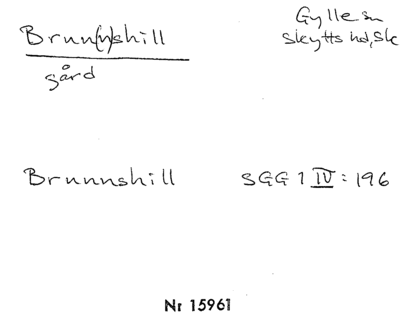 Brun(n)shill
Gylle sn
Skytts hd, Sk
gård
Brunnshill SGG 1 IV : 196
Nr 15961